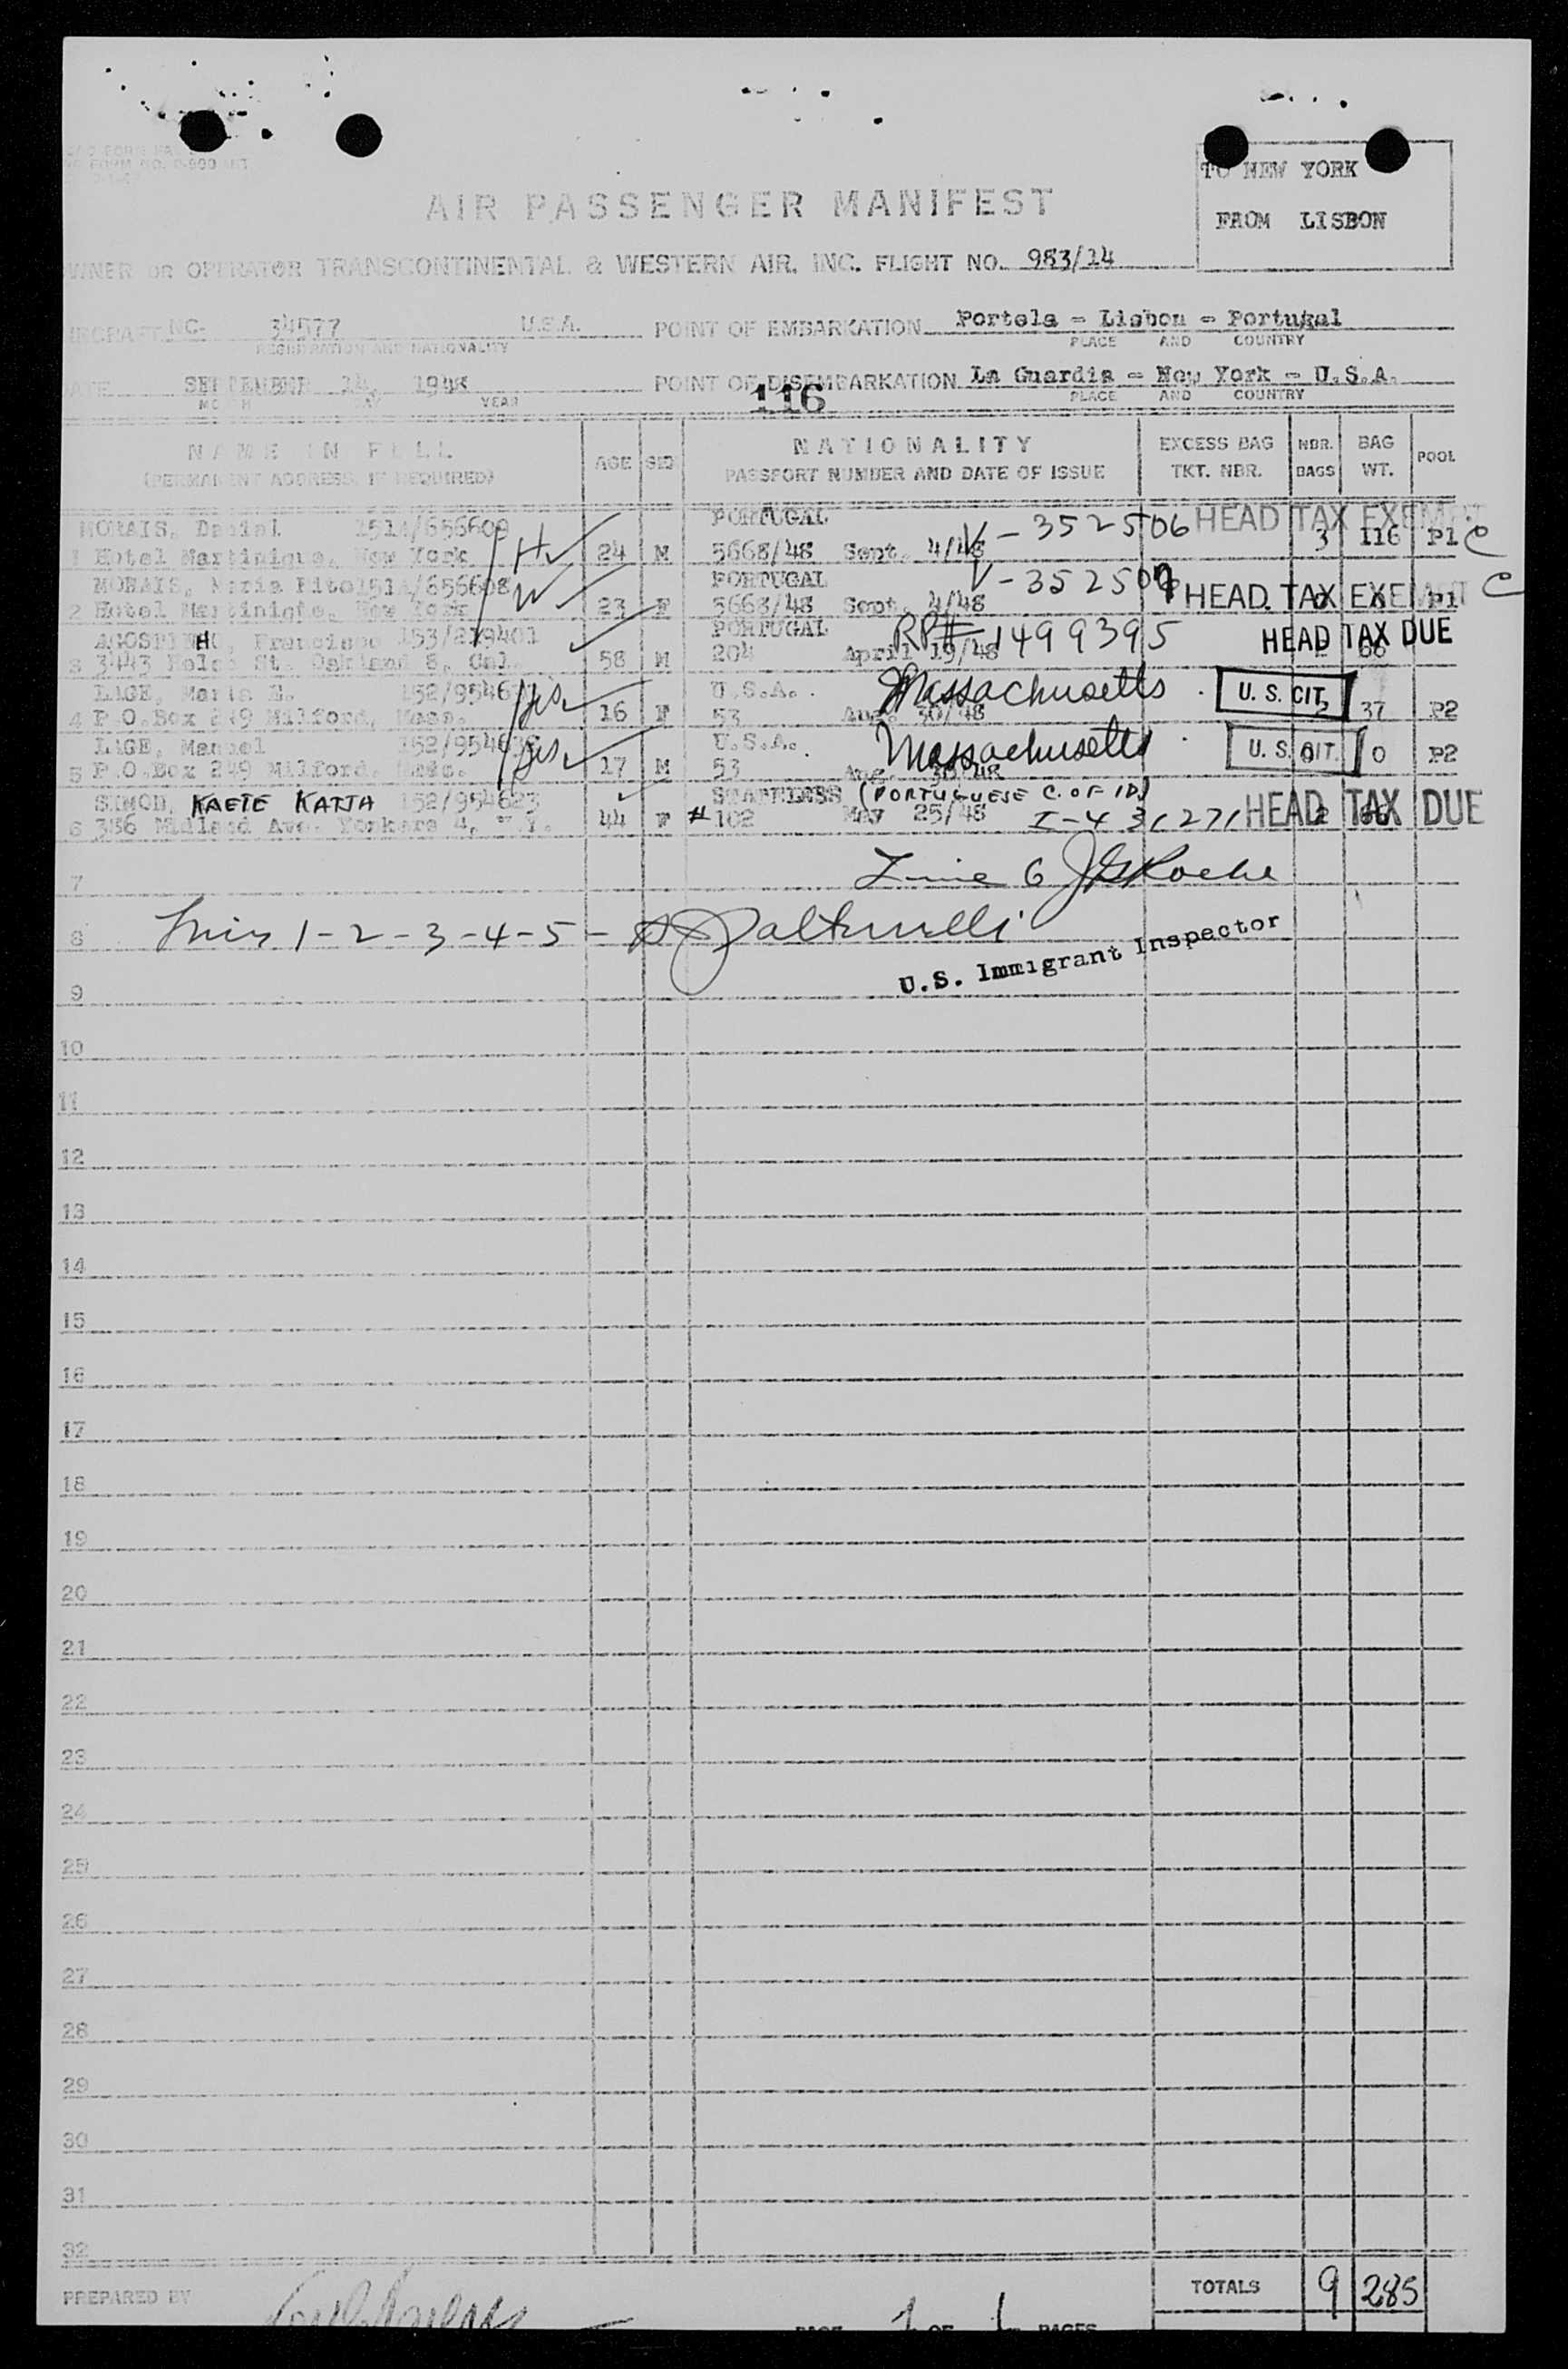 TO NEW YORK
FROM LISBON
AIR PASSENGER MANIFEST
OWNER OR OPERATOR TRANSCONTINENTAL & WESTERN AIR, INC. FLIGHT NO. 983/14
AIRCRAFT NC- 34577 U.S.A. POINT OF EMBARKATION Portela - Lisbon - Portugal
REGISTRATION AND NATIONALITY PLACE AND COUNTRY
DATE SEPTEMBER 14, 1948 POINT OF DISEMBARKATION La Guardia - New York - U.S.A.
YEAR PLACE AND COUNTRY
116
NAME IN FULL AGE SEX NATIONALITY EXCESS BAG NBR. BAG POOL
(PERMANENT ADDRESS, IF REQUIRED) PASSPORT NUMBER AND DATE OF ISSUE TKT. NBR. BAGS WT.
MORAIS, Daniel 151A/656609 PORTUGAL V-352506 HEAD TAX EXEMPT
1 Hotel Martinique, New York H 24 M 5668/48 Sept. 4/48 3 116 P1 C
MORAIS, Maria Rito 151A/656608 PORTUGAL V-352507 HEAD TAX EXEMPT C
2 Hotel Martinique, New York W 23 F 5668/48 Sept. 4/48 0 0 P1
AGOSTINHO, Francisco 153/219401 PORTUGAL RP# 1499395 HEAD TAX DUE
3 3443 St. Oakland 8, Cal. 58 M 204 April 19/48 66
LAGE, Maria E. U.S.A. Massachusetts U.S. CIT.
4 P.O.Box 249 Milford, Mass. yes 16 F 53 Aug. 30/48 2 37 P2
LAGE, Manuel U.S.A. Massachusetts U.S. CIT.
5 P.O.Box 249 Milford, Mass. yes 17 M 53 Aug. 30/48 0 0 P2
SIMON, KAETE KATJA 152/954623 STATELESS (PORTUGUESE C. OF ID)
6 386 Midland Ave. Yonkers 4, N.Y. 44 F #102 May 25/48 I-431271 HEAD TAX DUE 2 66
7 Line 6 J Roche
8 Lines 1-2-3-4-5-
U.S. Immigrant Inspector
9
10
11
12
13
14
15
16
17
18
19
20
21
22
23
24
25
26
27
28
29
30
31
32
PREPARED BY TOTALS 9 285
PAGE 1 OF 1 PAGES